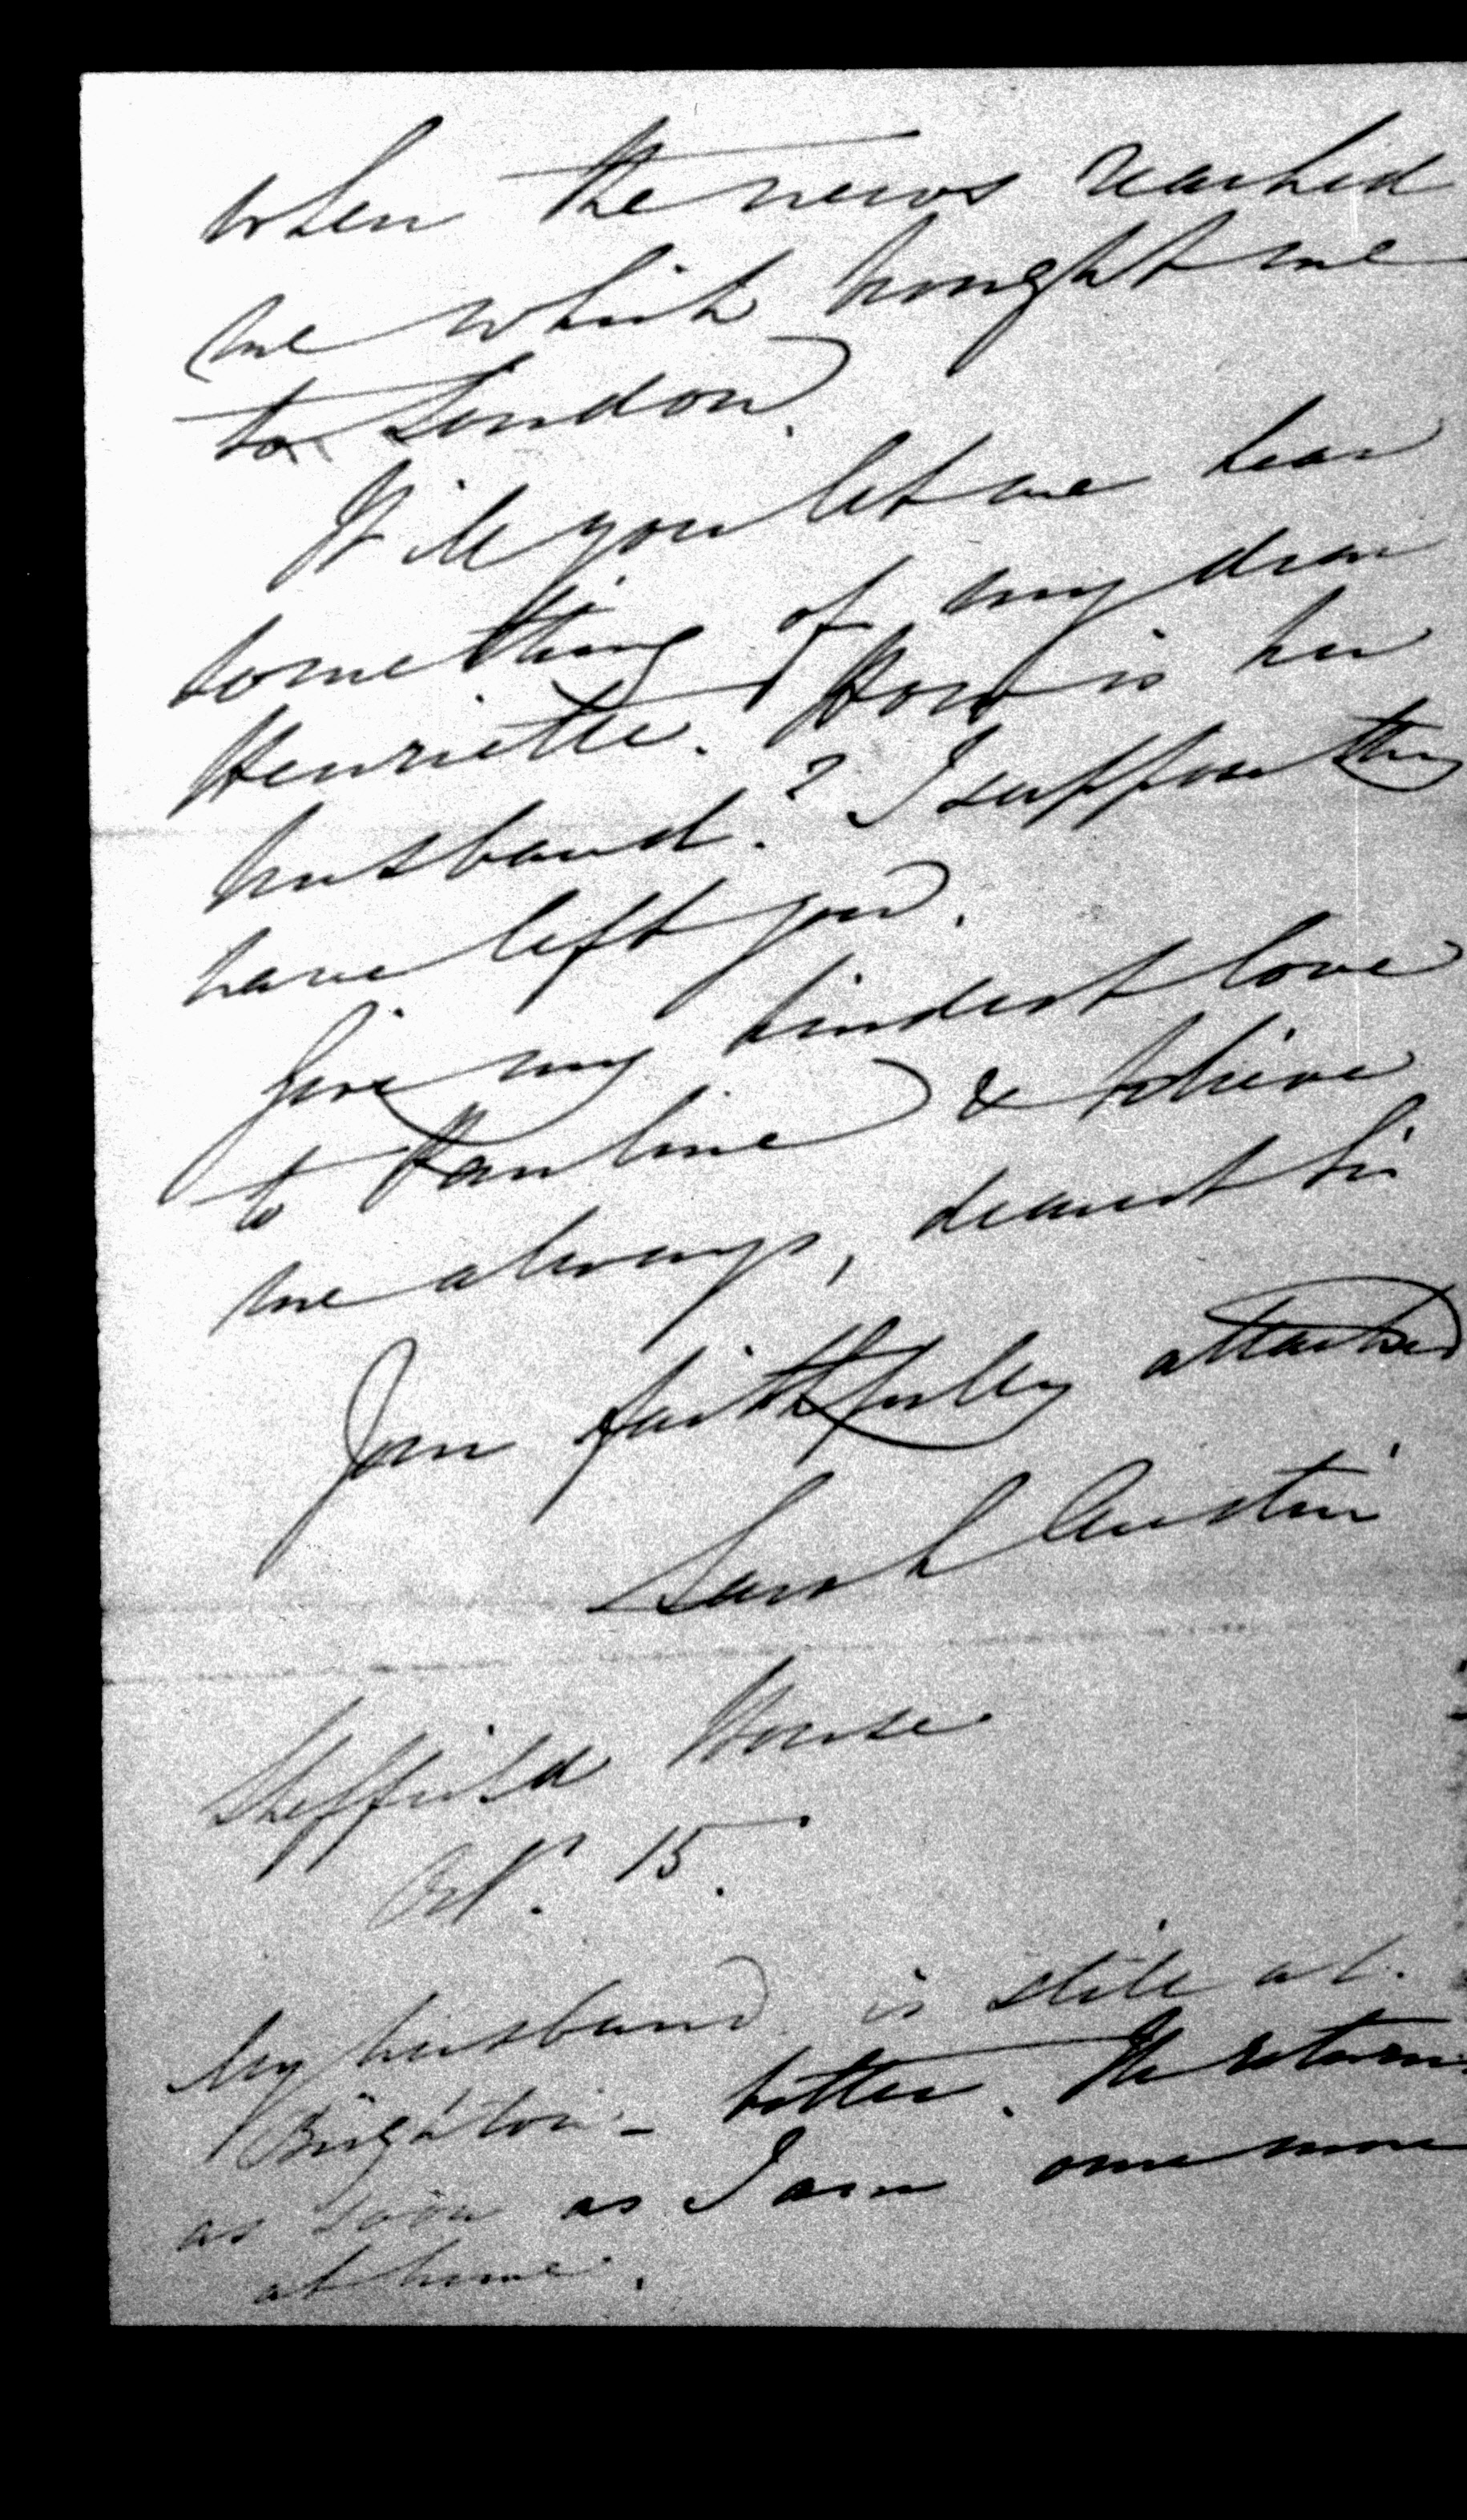 when the news reached
me which brought me
to London.
Will you let me hear
something of my dear
Henriette. How is her
husband.? I suppose they
have left you.
Give my kindest love
to Pauline & believe
me always, dearest Sir
Your faithfully attached
Sarah Austin
Sheffield House
Octr. 15.
My husband is still at
Brighton - better. He returns
as soon as I am once more
at home.